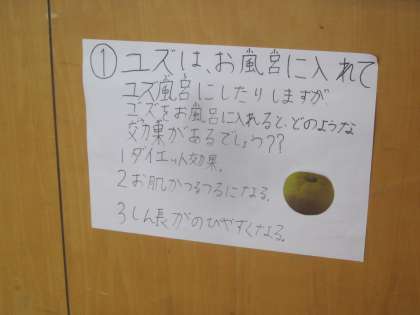 ① ユズは、お風宮に入れて
ユズ風宮にしたりしますが
ユズをお風宮に入れると、どのような
効果があるでしょう??
1 ダイエット効果。
2 お肌がつるつるになる。
3 しん長がのびやすくなる。